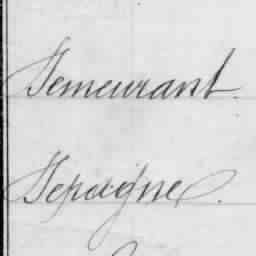 Demeurant
Depaigne.